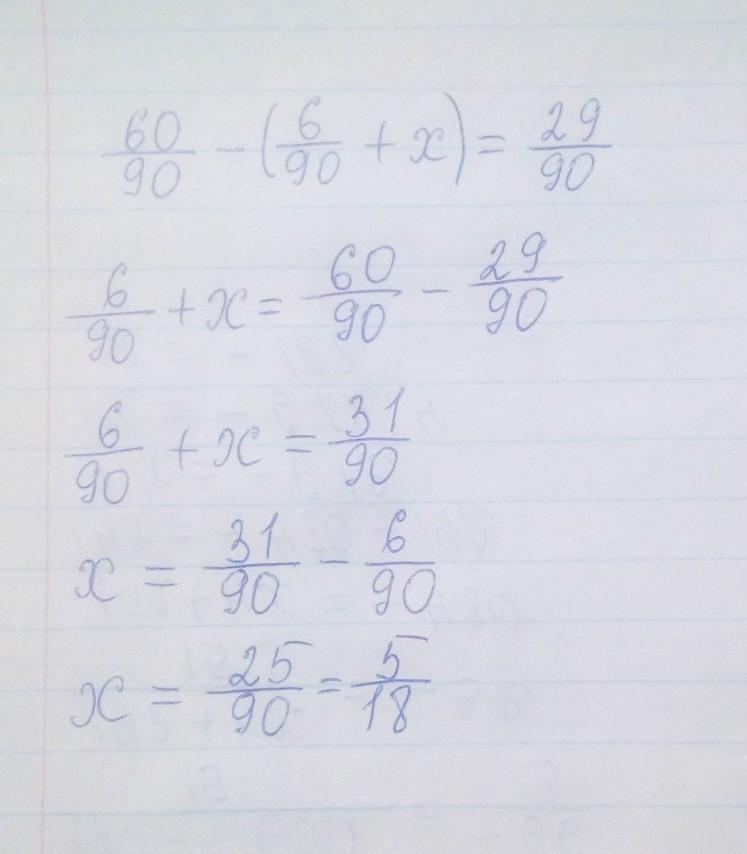 60/90 - (6/90 + x) = 29/90
6/90 + x = 60/90 - 29/90
6/90 + x = 31/90
x = 31/90 - 6/90
x = 25/90 = 5/18